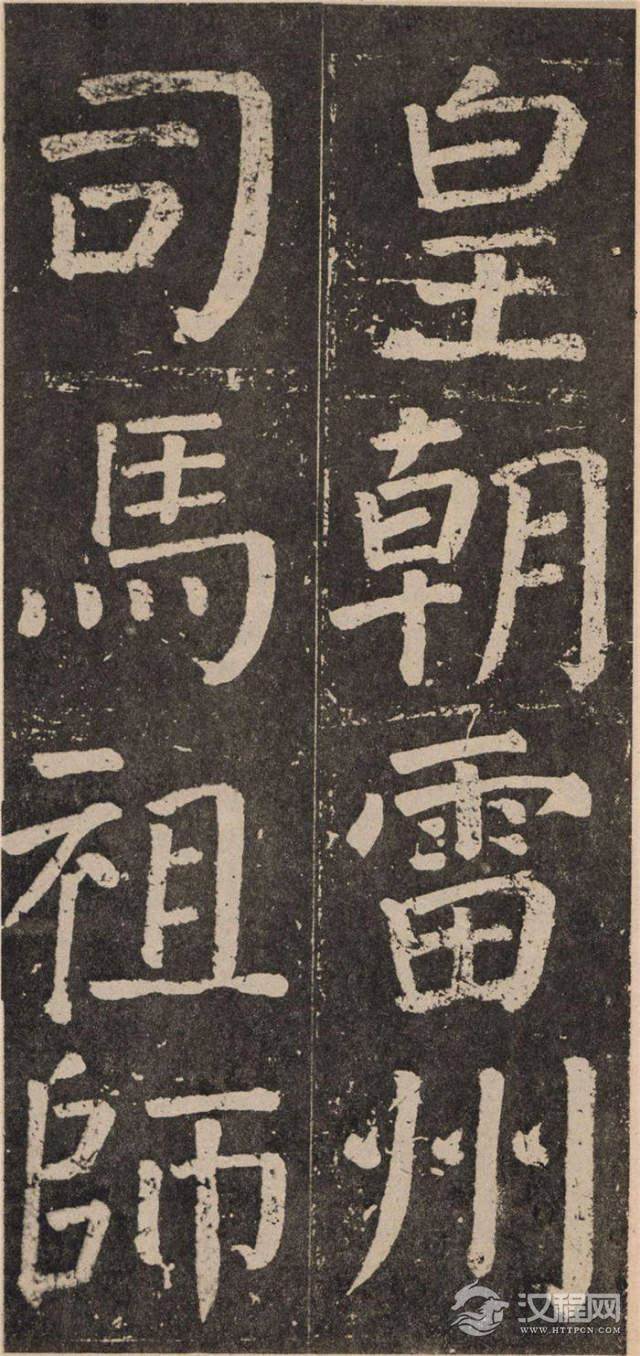 皇朝雷州
司馬祖師
汉程网
WWW.HTTPCN.COM